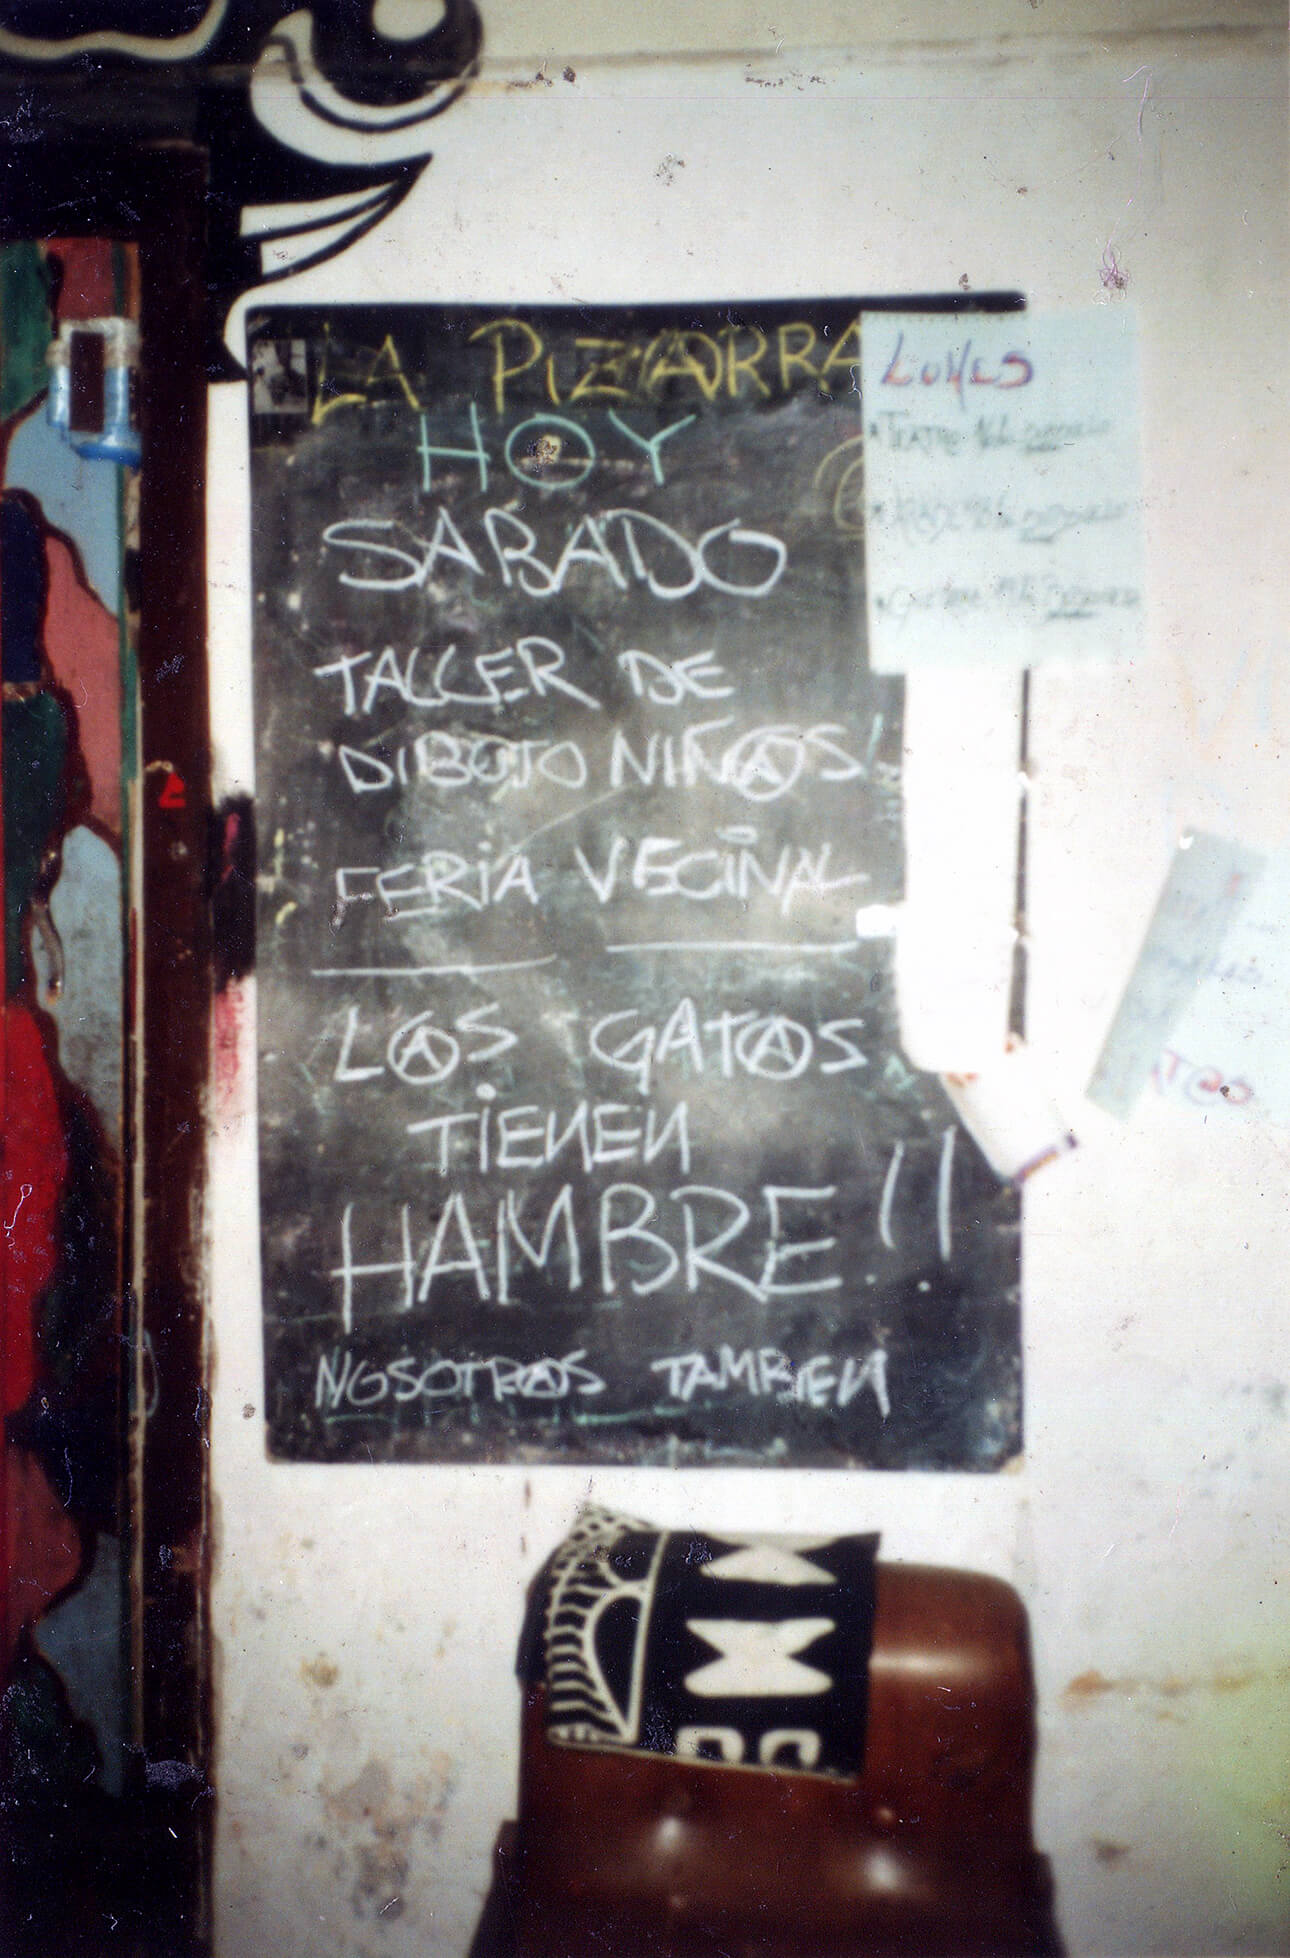 LA PIZⒶRRA
HOY
SABADO
TALLER DE
DIBUJO NIÑⒶS
FERIA VECINAL
LⒶS GATⒶS
TIENEN
HAMBRE!!
NOSOTRⒶS TAMBIEN
LUNES
TEATRO